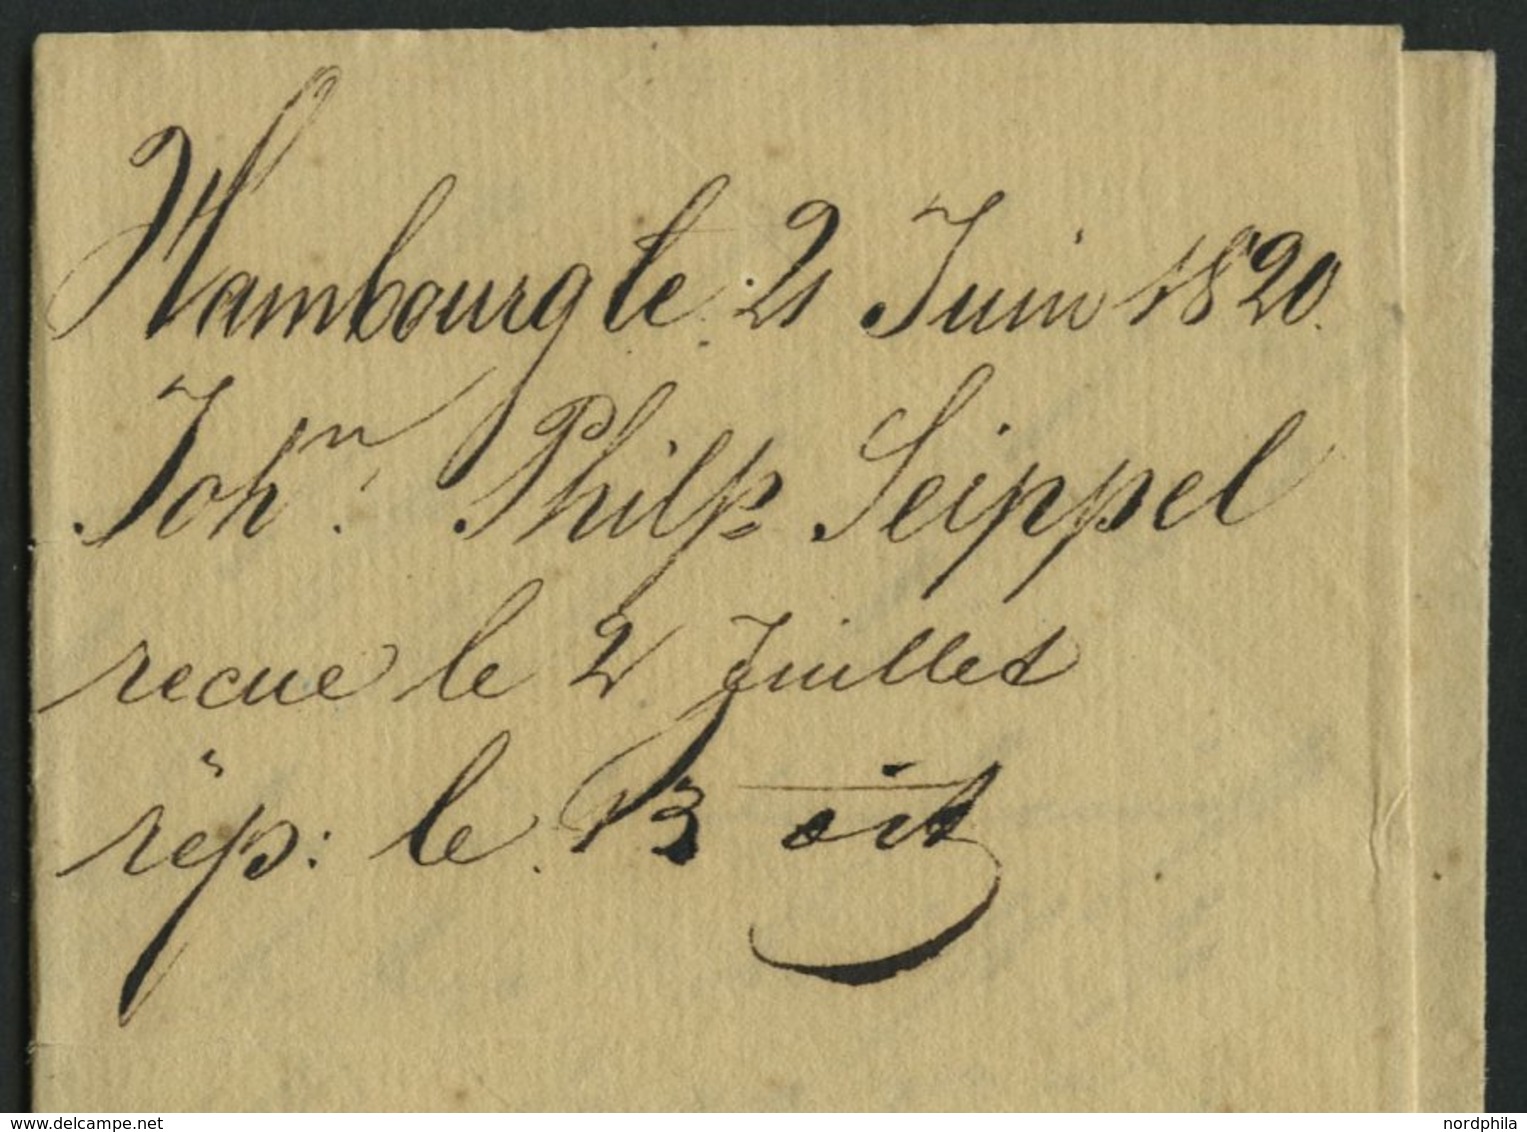 Hambourg le 21 Juin 1820.
Joh.n Philp Seippel
recue le 2 Juillet
rép: le 13 oct
delcampe.net
nordphila